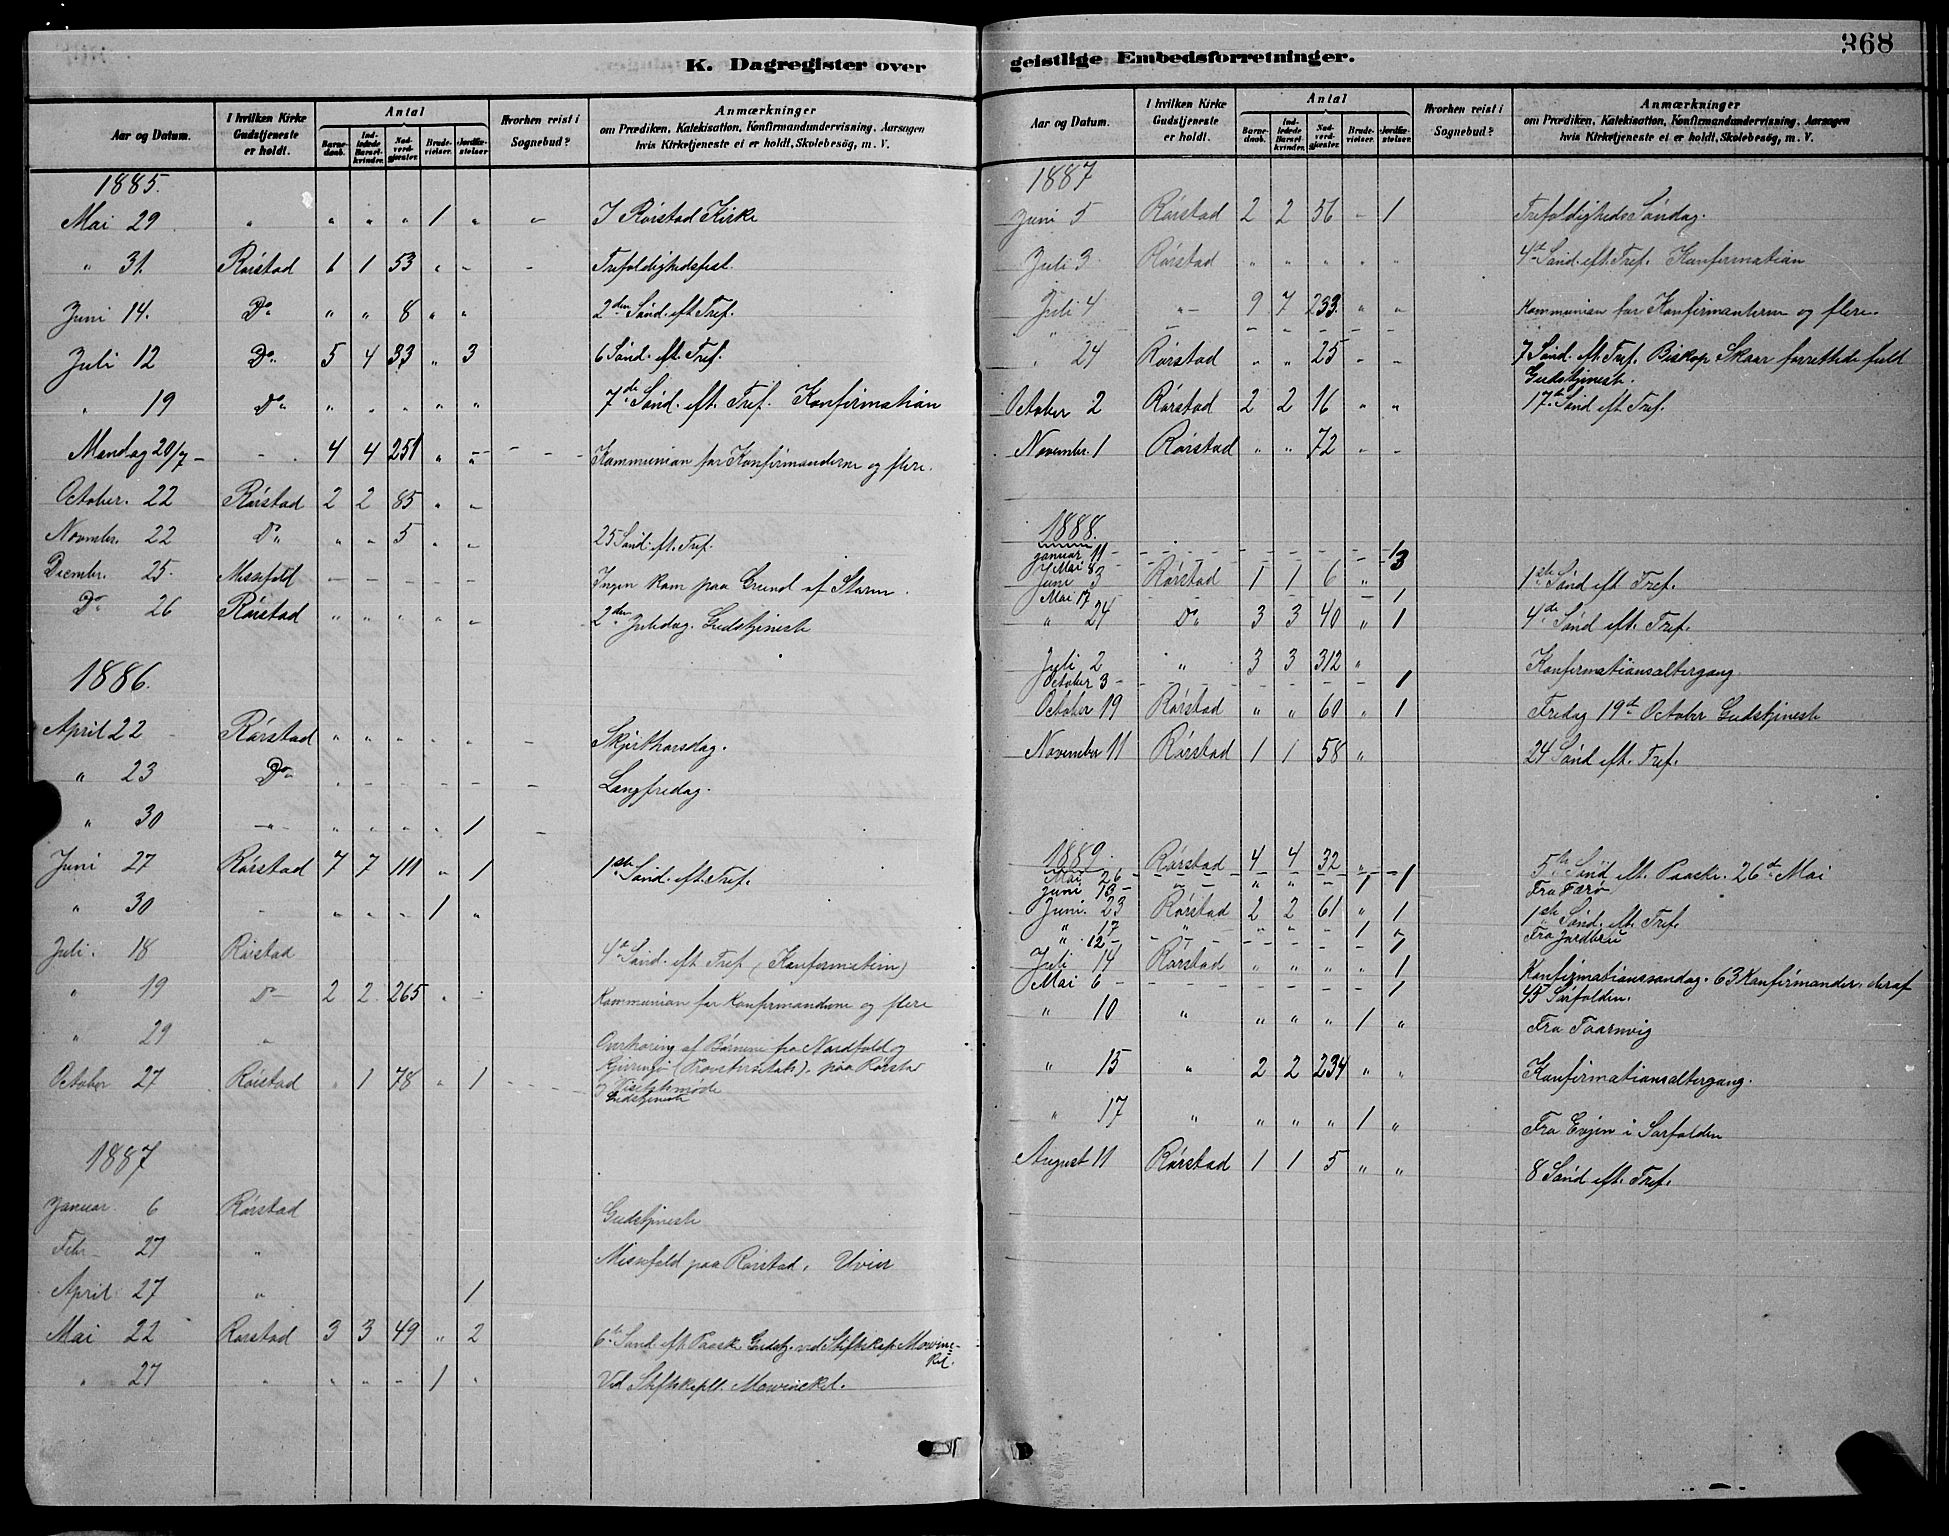 368
K. Dagregister over
Aar og Datum.
I hvilken Kirke Gudstjeneste er holdt.
Antal
Barnedaab.
Indledede Barselkvinder.
Nadverdgjester.
Brudevielser.
Jordfæstelser
Hvorhen reist i Sognebud?
Anmærkninger
om Prædiken, Katekisation, Konfirmandundervisning, Aarsagen
hvis Kirketjeneste ei er holdt, Skolebesög, m. V.
1885.
Mai 29 " " " " 1 " - I Rörstad Kirke
" 31. Rörstad 1 1 53 " - - Trefoldighedsfest.
Juni 14. Do " " 8 " " 2den Sönd. eft. Tref.
Juli 12 Do 5 4 33 " 3 6 Sönd. eft. Tref.
" 19 Do " " " " " 7de Sönd. eft. Tref. Konfirmation
Mandag 20/7 - - 4 4 251 " " - - Kommunion for Konfirmanderne og flere.
October. 22 Rörstad 2 2 85 " "
Novembr. 22 Do " " 5 " " 25 Sönd. eft. Tref.
Decembr. 25. Missefold - - - - - Ingen kom paa Grund af Storm.
Do 26 Rörstad " " " " " 2den Juledag. Gudstjeneste
1886.
April 22 Rörstad " " " " " - Skjærthorsdag.
" 23 Do - - - - - - Langfredag.
" 30 -"- " " " " 1 -
Juni 27 Rörstad 7 7 111 " 1 1ste Sönd. eft. Tref.
" 30 - " " - 1 "
Juli. 18 Rörstad 4de Sönd. eft Tref. (Konfirmation)
" 19 Do 2 2 265 " - Kommunion for Konfirmanderne og flere
" 29 " Overhöring af Börnene fra Nordfold og
October 27 Rörstad " 1 78 " 1 - - (Provstevisitats), paa Rörstad
Gudstjeneste
1887
Januar. 6 Rörstad Gudstjeneste
Febr - 27 " Missefald paa Rörstad. Uveir
April 27 " 1
Mai 22 Rörstad 3 3 49 " 2 6te Sönd. eft Paaske Gudstj. ved Stiftskap. Mowinckel.
" 27 " " " - 1 " Ved Stiftskapll. Mowinckel.
geistlige Embedsforretninger.
Aar og Datum.
I hvilken Kirke Gudstjeneste er holdt.
Antal
Barnedaab.
Indledede Barselkvinder.
Nadverdgjester.
Brudevielser.
Jordfæstelser
Hvorhen reist i Sognebud?
Anmærkninger
om Prædiken, Katekisation, Konfirmandundervisning, Aarsagen
hvis Kirketjeneste ei er holdt, Skolebesög, m. V.
1887
Juni 5 Rörstad 2 2 56 - 1 Trefoldigheds Söndag.
Juli 3 Rörstad " " " " " 4de Sönd. eft. Tref. Konfirmation
Juli 4 "- 9 7 233. " " Kommunion for Konfirmanterne og flere.
" 24 Rörstad " " 25 - - 7 Sönd. eft. Tref. Biskop Skaar forrettede fuld
Gudstjeneste.
October 2 Rörstad 2 2 16 " " 17de Sönd eft Tref.
Novembr. 1 Rörstad " " 72 - -
1888.
Januar 11 - - - - - - 1
Mai 8 3
Juni 3 Rörstad 1 1 6 " 1ste Sönd eft Tref.
Mai 17 - - - - - 1
" 24 Do 3 3 40 " 1 4de Sönd eft. Tref.
Juli 2 " 3 3 312 " Konfirmationsaltergang.
October 3 - - - - - - 1
October 19 Rörstad " " 60 " 1 Fredag 19de October Gudstjeneste
November 11 Rörstad 1 1 58 " 24 Sönd eft. Tref.
1889. Rörstad 4 4 32 "
Mai 26 - - - - - - 1 5te Sönd eft. Paaske. 26de Mai
Juni 13 - " " " - 1 Fra Færö
Juni. 23 Rörstad 2 2 61 " 1 1ste Sönd. eft. Tref.
" 17 " " " - 1 " Fra Jordbru
" 12 - - - - - - 1
Juli 14 Rörstad " " " " 1 Konfirmationssöndag. 63 Konfirmander, deraf
Mai 6 - - - - - - 1 45 Sörfolden.
" 10 " " " " 1 " Fra Taarnvig
" 15 " 2 2 234 " " Konfirmationsaltergang.
" 17 " " " " 1 " Fra Evjen i Sörfolden
August 11 Rörstad 1 1 5 " " 8 Sönd eft. Tref.